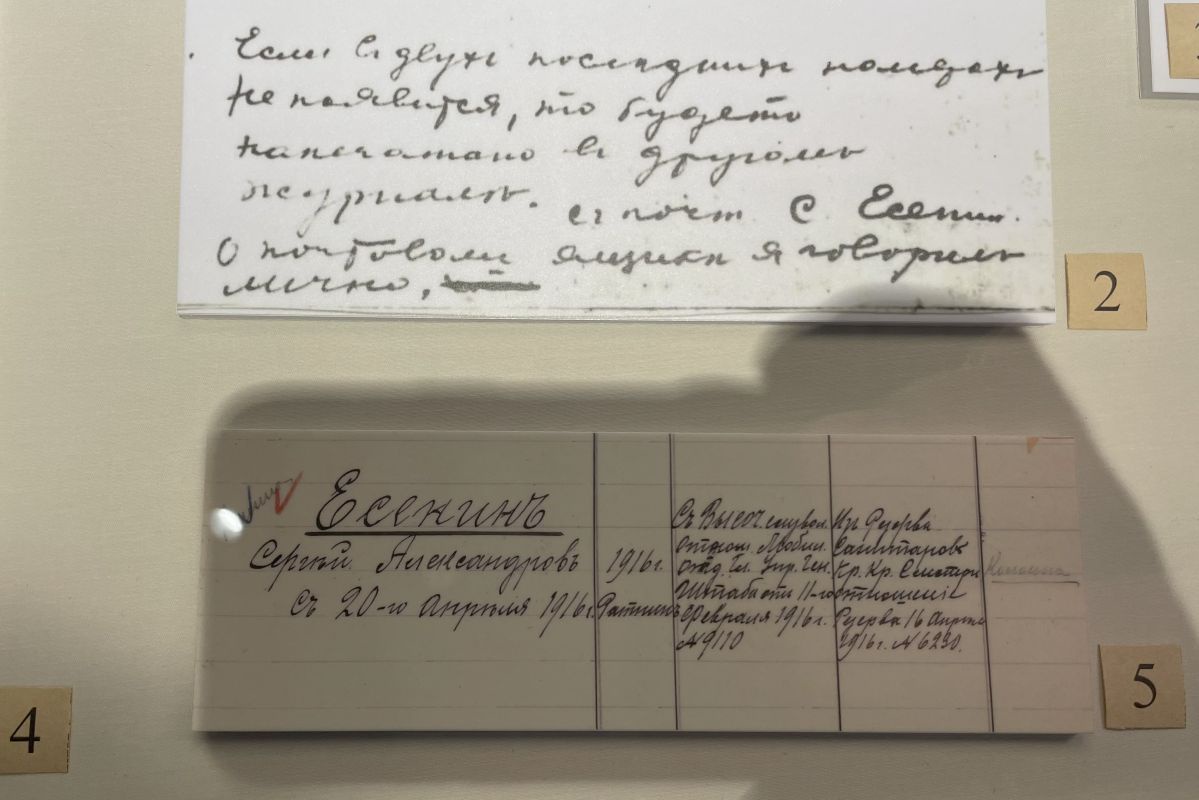 Если въ двухъ последнихъ номерахъ
не появится, то будетъ
напечатано въ другомъ
журналѣ.
съ почт С Есенин.
О почтовом ящике я говорилъ
лично,
2
Есенинъ
Сергѣй Александровъ
съ 20-го Апрѣля 1916г.
1916г.
Ратникъ
Съ Высоч.
отд. Гл. Упр. Ген.
Штаба отъ 11-го
Февраля 1916г.
№ 9110
Изъ Резерва
Санитаровъ
Кр. Кр.
отношеніе
Резерва 16 Апрѣля
1916г. № 6230.
4
5